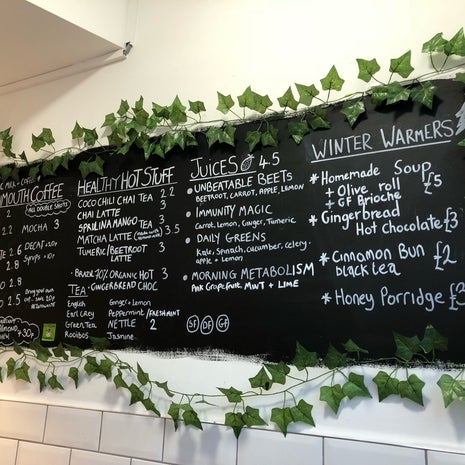 MILK + COFFEE
MOUTH COFFEE
ALL DOUBLE SHOTS
2
2.2 MOCHA 3
2.6 DECAF +10p
2.8 SYRUPS +10p
2.8
2.5
+30p
HEALTHY HOT STUFF
COCO CHILI CHAI TEA 2.2
CHAI LATTE 3
SPIRULINA MANGO TEA 3
MATCHA LATTE 3.5
TUMERIC/BEETROOT 3
LATTE
• BRAZIL 70% ORGANIC HOT 3
TEA - GINGERBREAD CHOC
English Ginger + Lemon
Earl Grey Peppermint / FRESH MINT
Green Tea NETTLE 2
Rooibos Jasmine
JUICES 4.5
• UNBEATABLE BEETS
BEETROOT, CARROT, APPLE, LEMON
• IMMUNITY MAGIC
Carrot, Lemon, Ginger, Tumeric
• DAILY GREENS
Kale, Spinach, cucumber, celery,
apple + Lemon
• MORNING METABOLISM
Pink Grapefruit MINT + LIME
SF DF GF
WINTER WARMERS
* Homemade Soup
+ Olive roll £5
+ GF Brioche
* Gingerbread
Hot chocolate £3
* Cinnamon Bun £2
black tea
* Honey Porridge £3